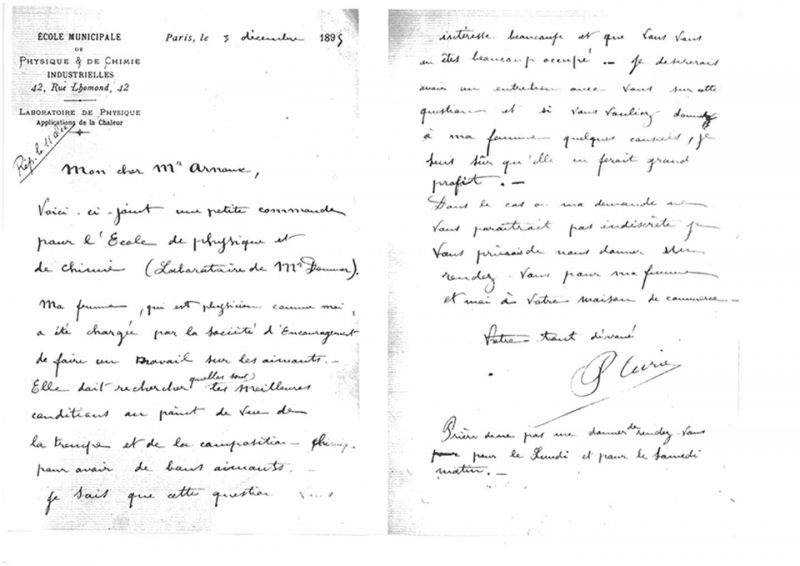 ÉCOLE MUNICIPALE
DE
PHYSIQUE & DE CHIMIE
INDUSTRIELLES
42, Rue Lhomond, 42
LABORATOIRE DE PHYSIQUE
Applications de la Chaleur
Paris, le 3 décembre 1895
Rép. le 11 déc
Mon cher Mr Arnoux,
Voici ci-joint une petite commande
pour l'Ecole de physique et
de chimie (Laboratoire de Mr).
Ma femme, qui est physicien comme moi,
a été chargée par la société d'Encouragement
de faire un travail sur les aimants. —
Elle doit rechercher quelles sont les meilleures
conditions au point de vue de
la trempe et de la composition
pour avoir de bons aimants. —
Je sais que cette question vous
intéresse beaucoup et que vous vous
en êtes beaucoup occupé — Je desirerais
avoir un entretien avec vous sur cette
question et si vous vouliez donner
à ma femme quelques conseils, je
suis sûr qu'elle en ferait grand
profit. —
Dans le cas où ma demande ne
vous paraîtrait pas indiscrète je
vous prierais de nous donner un
rendez-vous pour ma femme
et moi à votre maison de commerce —
Votre tout dévoué
P Curie
Prière de ne pas me donner de rendez-vous
pour le Lundi et pour le Samedi
matin. —